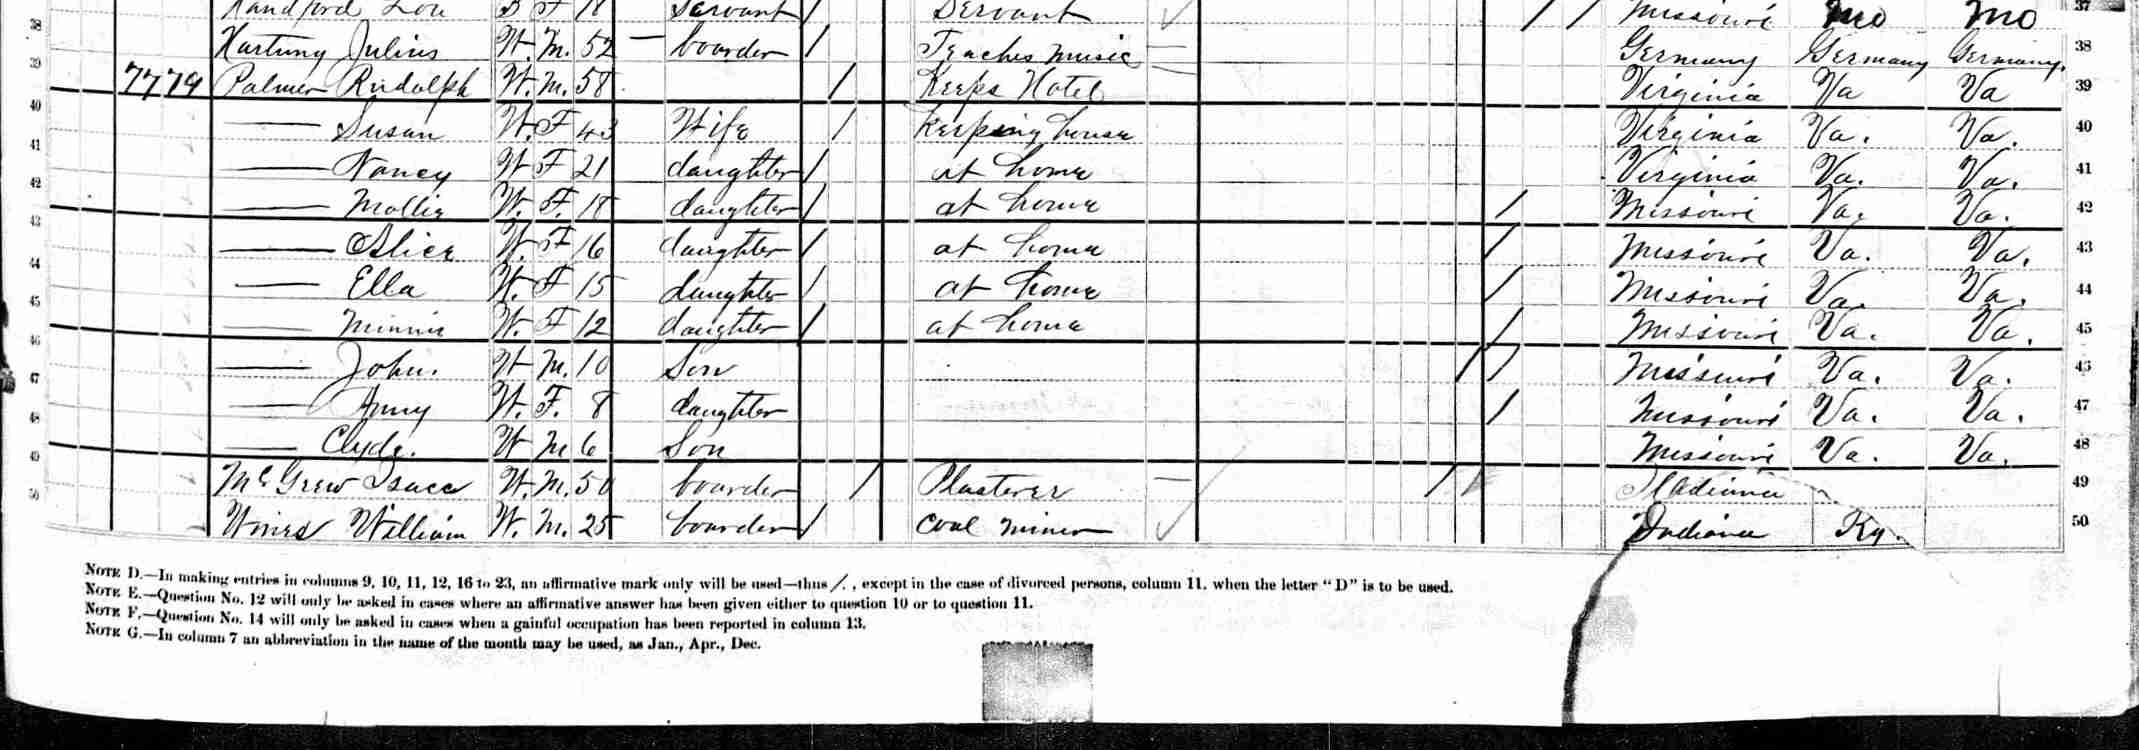 38 Randford Lou B F 18 Servant / Servant / / Missouri Mo Mo 37
39 Hartung Julius W. M. 52 — boarder / Teaches music — Germany Germany Germany. 38
77 79 Palmer Rudolph W. M. 58 / Keeps Hotel Virginia Va Va 39
40 — Susan W. F 43 Wife / Keeping house Virginia Va. Va. 40
41 — Nancy W F 21 daughter / at home Virginia Va. Va. 41
42 — Mollie W. F. 18 daughter / at home / Missouri Va. Va. 42
43 — Alice W. F 16 daughter / at home / Missouri Va. Va. 43
44 — Ella W. F 15 daughter / at home / Missouri Va. Va. 44
45 — Minnie W. F 12 daughter / at home / Missouri Va. Va. 45
46 — John. W M. 10 Son / / Missouri Va. Va.
47 — Anny W. F. 8 daughter / Missouri Va. Va. 47
48 — Clyde. W M 6 Son Missouri Va. Va. 48
49 McGrew Isaac W. M. 50 boarder / Plasterer — / 49
50 William W. M. 25 boarder / Coal miner Indiana Ky. 50
NOTE D.—In making entries in columns 9, 10, 11, 12, 16 to 23, an affirmative mark only will be used—thus /. , except in the case of divorced persons, column 11. when the letter "D" is to be used.
NOTE E.—Question No. 12 will only be asked in cases where an affirmative answer has been given either to question 10 or to question 11.
NOTE F.—Question No. 14 will only be asked in cases when a gainful occupation has been reported in column 13.
NOTE G.—In column 7 an abbreviation in the name of the month may be used, as Jan., Apr., Dec.